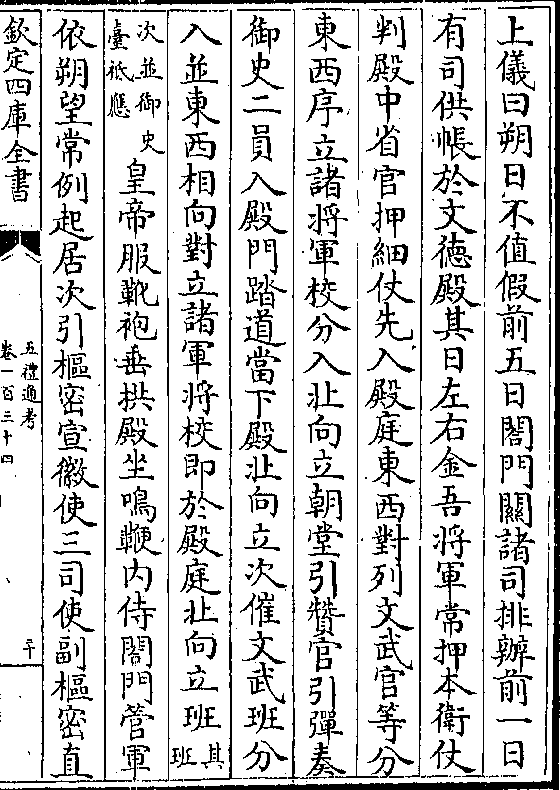 上儀曰朔日不值假前五日閤門關諸司排辦前一日
有司供帳於文德殿其日左右金吾將軍常押本衛仗
判殿中省官押細仗先入殿庭東西對列文武官等分
東西序立諸將軍校分入北向立朝堂引贊官引彈奏
御史二員入殿門踏道當下殿北向立次催文武班分
入並東西相向對立諸軍將校即於殿庭北向立班其班
次並御史臺祗應皇帝服靴袍垂拱殿坐鳴鞭内侍閤門管軍
依朔望常例起居次引樞密宣徽使三司使副樞密直
欽定四庫全書
五禮通考
卷一百三十四
二十